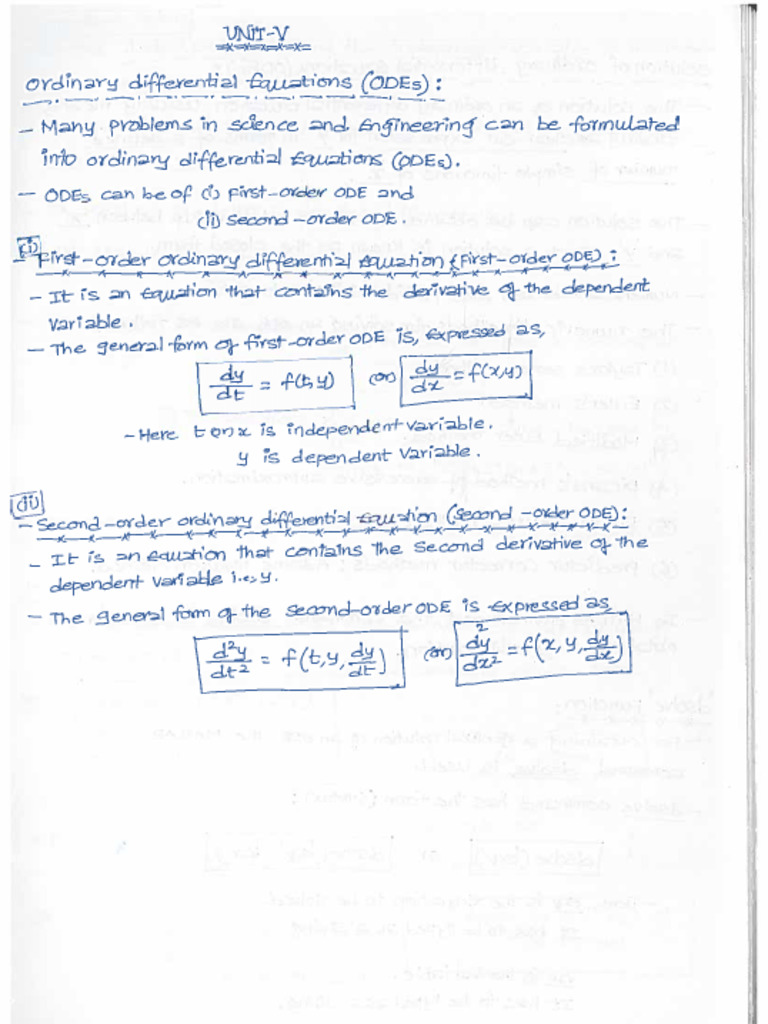 UNIT-V
Ordinary differential Equations (ODEs):
- Many problems in science and Engineering can be formulated
into ordinary differential Equations (ODEs).
- ODEs can be of (i) First-order ODE and
(ii) Second-order ODE.
(i)
- First-order ordinary differential Equation (First-order ODE):
- It is an Equation that contains the derivative of the dependent
variable.
- The general form of first-order ODE is, expressed as,
dy/dt = f(t,y) (or) dy/dx = f(x,y)
- Here t or x is independent variable.
y is dependent variable.
(ii)
- Second-order ordinary differential Equation (Second-order ODE):
- It is an Equation that contains the Second derivative of the
dependent variable i.e., y.
- The general form of the second-order ODE is expressed as
d²y/dt² = f(t,y,dy/dt) (or) d²y/dx² = f(x,y,dy/dx)